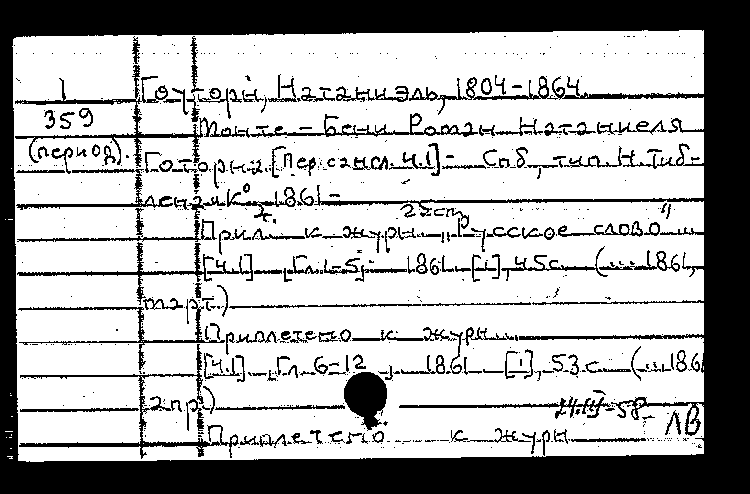 1 Гоуторн, Натаниэль, 1804-1864
359 Монте-Бени Роман Натаниеля
(период). Готорна. [Пер. с англ. Ч.1] - Спб, тип. Н. Тиб-
лена и К° 1861 -
2 т. 25 см
Прил. к журн. "Русское слово"...
[Ч.1]. Гл. 1-5. 1861. [1], 45 с. (... 1861,
март.)
Приплетено к журн...
[Ч.1]. Гл. 6-12. 1861. [1], 53 с. (... 186
апр.)
24.III-58
ЛВ
Приплетено к журн